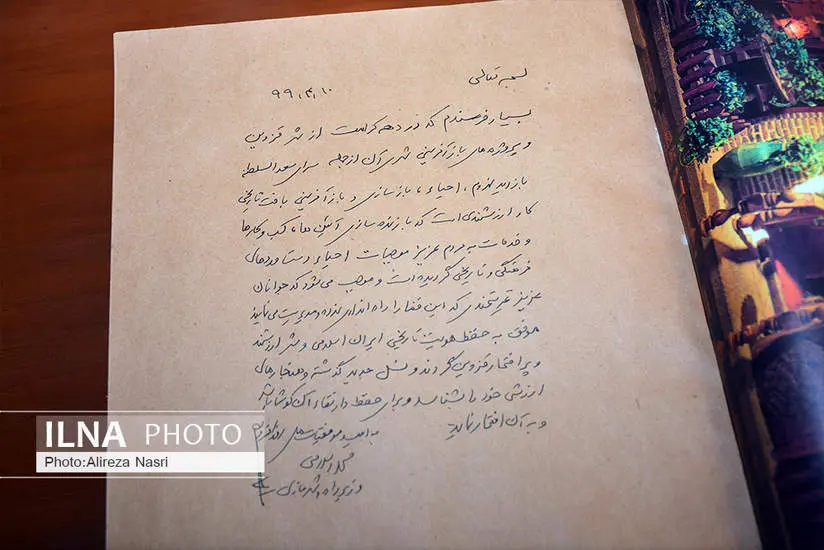 بسمه تعالی
۹۹،۴،۱۰
بسیار خرسندم که در دهه کرامت از شهر قزوین
و پروژه‌های بازآفرینی شهری آن از جمله سرای سعدالسلطنه
بازدید نمودم، احیاء، بازسازی و بازآفرینی بافت تاریخی
کار ارزشمندی است که با زنده سازی آئین ها، کسب و کارها
و خدمات به مردم عزیز موجبات احیاء دستاوردهای
فرهنگی و تاریخی گردیده است و موجب می‌شود که جوانان
عزیز هنرمندی که این فضا را راه اندازی نموده و مدیریت می‌نمایند
موفق به حفظ هویت تاریخی ایران اسلامی و شهر ارزشمند
و پرافتخار قزوین گردند و نسل جدید گذشته و هنجارهای
ارزشی خود را بشناسد و برای حفظ و ارتقاء آن کوشا باشد
و به آن افتخار نماید
به امید موفقیت های روزافزون
محمد اسلامی
وزیر راه و شهرسازی
ILNA PHOTO
Photo:Alireza Nasri